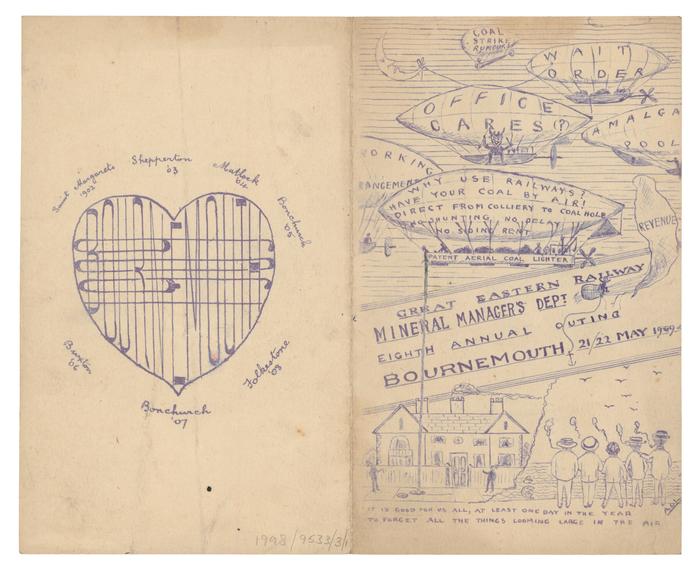 Saint Margarets
1902
Shepperton
'03
Matlock
'04
Bonchurch
'05
Buxton
'06
Bonchurch
'07
Folkestone
'08
1998/9533/3/1
COAL
STRIKE
RUMOURS
WAIT
ORDER
OFFICE
CARES(?)
AMALGA
POOL
ORKING
ANGEMEN
WHY USE RAILWAYS?
HAVE YOUR COAL BY AIR!
DIRECT FROM COLLIERY TO COAL HOLE
NO SHUNTING NO DELAY
NO SIDING RENT
REVENUE
PATENT AERIAL COAL LIGHTER
GREAT EASTERN RAILWAY
MINERAL MANAGER'S DEPT
EIGHTH ANNUAL OUTING
BOURNEMOUTH, 21/22 MAY 1909
IT IS GOOD FOR US ALL, AT LEAST ONE DAY IN THE YEAR
TO FORGET ALL THE THINGS LOOMING LARGE IN THE AIR